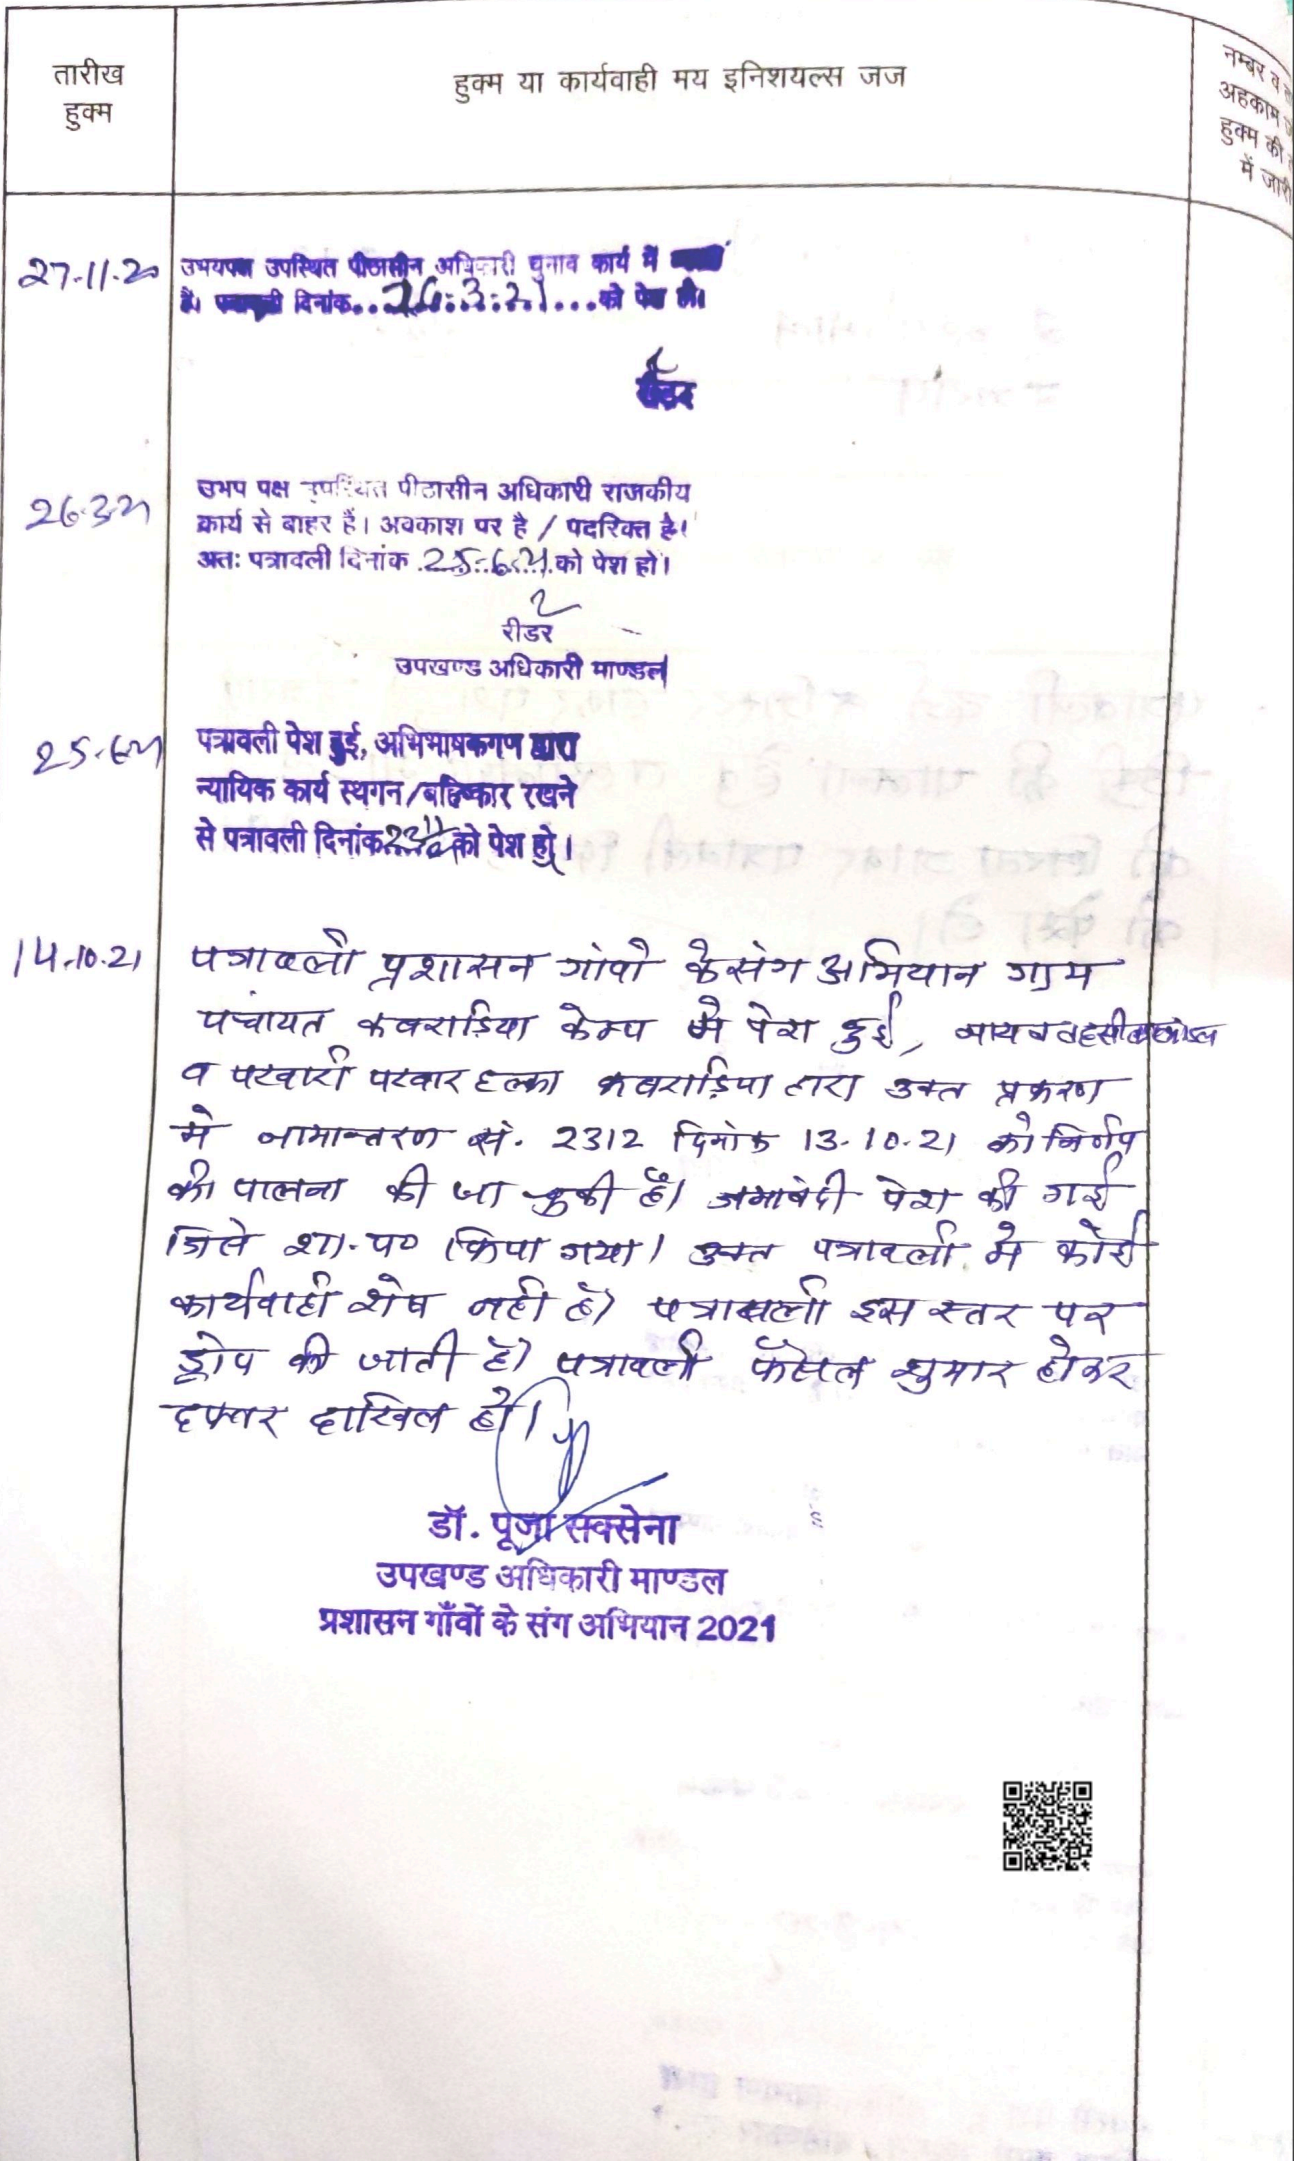 तारीख
हुक्म
हुक्म या कार्यवाही मय इनिशयल्स जज
नम्बर व
अहकाम
हुक्म की
में जारी
27-11-20
उभयपक्ष उपस्थित पीठासीन अधिकारी चुनाव कार्य में
है। पत्रावली दिनांक..26.3.21...को पेश हो।
रीडर
26-3-21
उभप पक्ष उपस्थित पीठासीन अधिकारी राजकीय
कार्य से बाहर हैं। अवकाश पर है / पदरिक्त है।
अतः पत्रावली दिनांक .25.6.21.को पेश हो।
रीडर
उपखण्ड अधिकारी माण्डल
25-6-21
पत्रावली पेश हुई, अभिभाषकगण द्वारा
न्यायिक कार्य स्थगन/बहिष्कार रखने
से पत्रावली दिनांक को पेश हो।
14-10-21
पत्रावली प्रशासन गांवो के संग अभियान ग्राम
पंचायत कबराडिया केम्प मे पेश हुई, नायब तहसीलदार
व पटवारी पटवार हल्का कबराड़िया द्वारा उक्त प्रकरण
मे नामान्तरण सं. 2312 दिनांक 13-10-21 को निर्णय
की पालना की जा चुकी है। जमाबंदी पेश की गई
जिसे शा.प० किया गया। उक्त पत्रावली मे कोई
कार्यवाही शेष नही है। पत्रावली इस स्तर पर
ड्रोप की जाती है। पत्रावली फैसल शुमार होकर
दफ्तर दाखिल हो।
डॉ. पूजा सक्सेना
उपखण्ड अधिकारी माण्डल
प्रशासन गाँवों के संग अभियान 2021